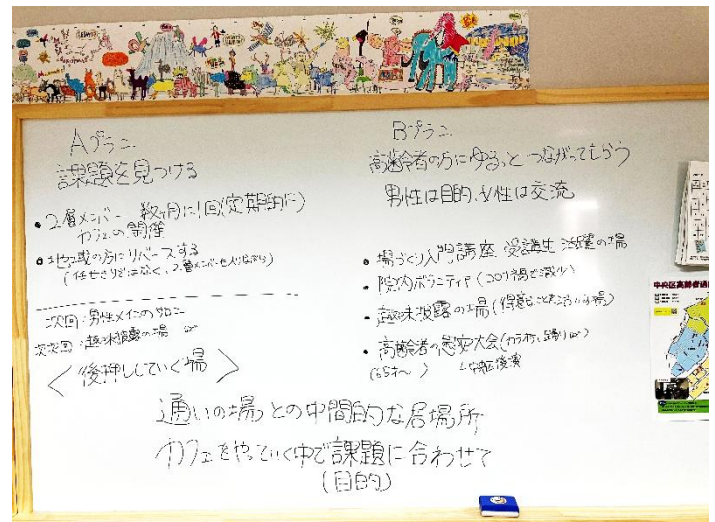 Aプラン
課題を見つける
• 2層メンバー 数ヶ月に1回(定期的に)
カフェの開催
• 地域の方にリバースする
(任せきりではなく、2層メンバーも入りながら)
次回:男性メインのサロン
次次回:趣味披露の場 or
〈後押ししていく場〉
Bプラン
高齢者の方にゆるっとつながってもらう
男性は目的、女性は交流
• 場づくり入門講座 受講生 活躍の場
• 院内ボランティア(コロナ禍で減少)
• 趣味披露の場(得意なこと
• 高齢者の慰安大会(カラオケ、踊り or)
(65才〜) 中央区後援
通いの場との中間的な居場所
カフェをやっていく中で課題に合わせて
(目的)
中央区高齢者